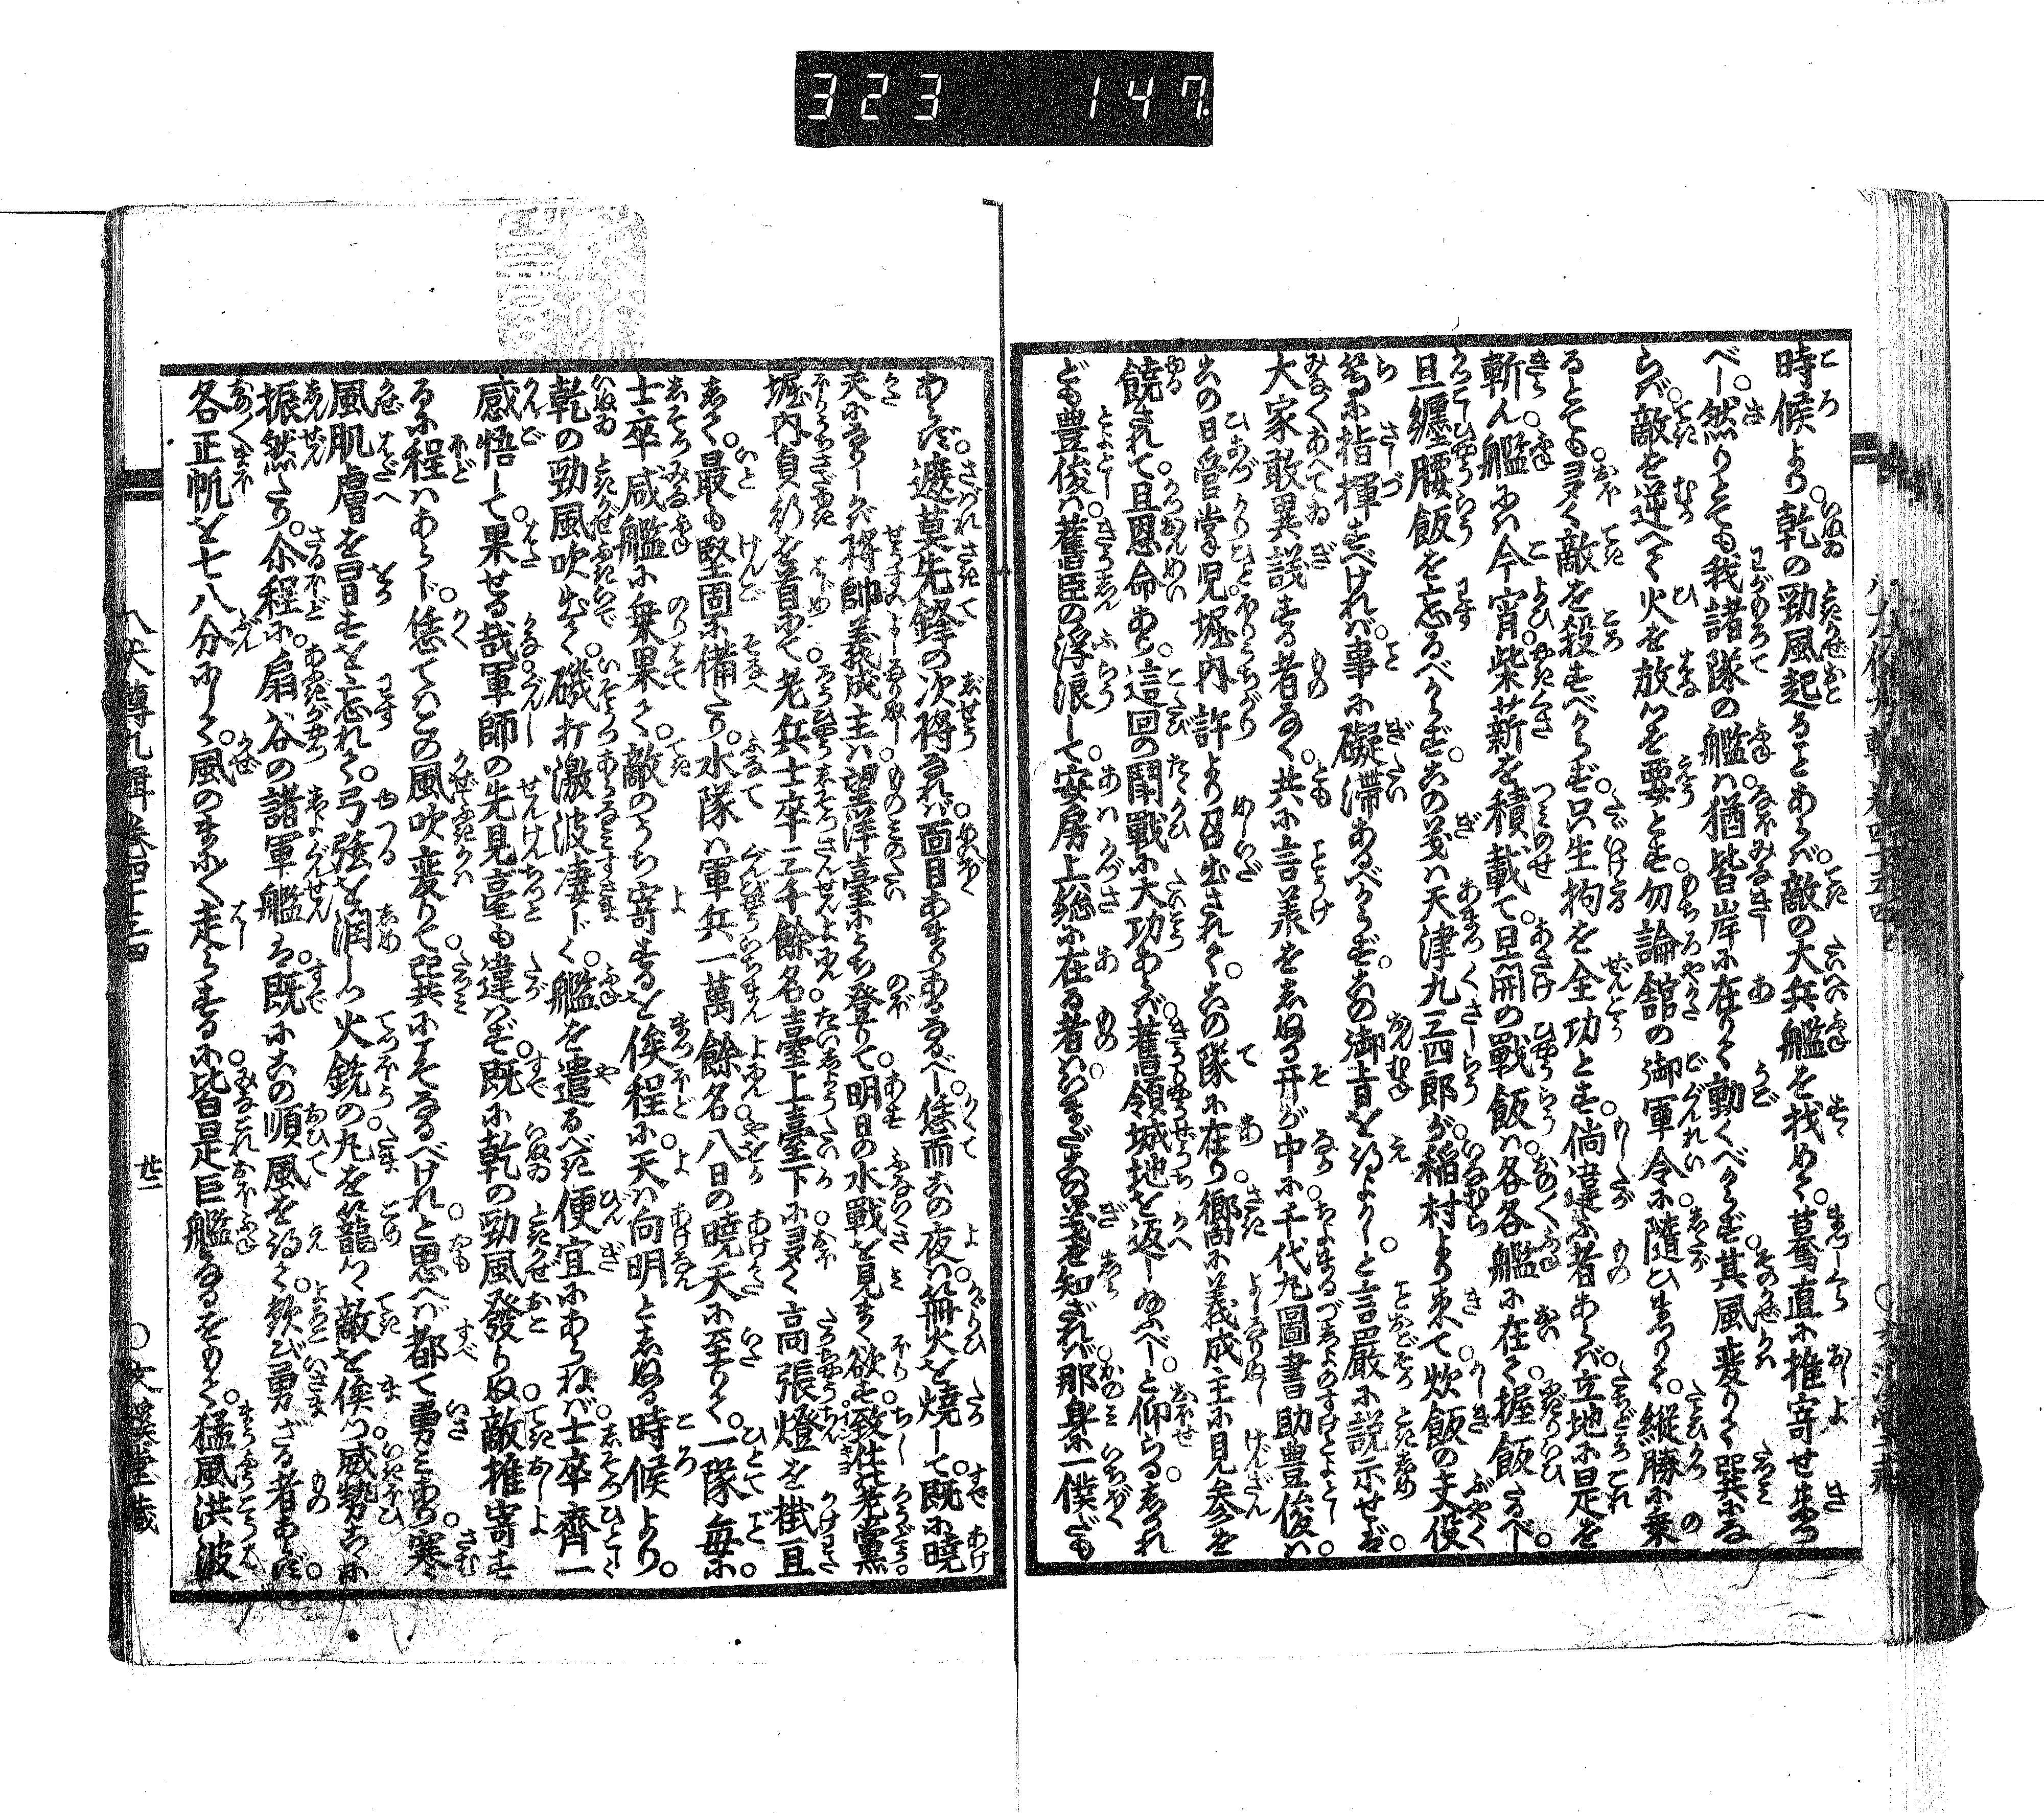 323 147
時候より。乾の勁風起ることあらば。敵の大兵艦を找めて。驀直に推寄せ來る
べし。然りとても我諸隊の艦は。猶皆岸に在りて動くべからず。其風変りて巽になる
らば。敵を逆へて火を放つを要とす。勿論舘の御軍令に隨ひまつりて。縦勝に乗
るとても。ヨク敵を殺すべからず。只生拘を全功とす。倘違ふ者あらば。立地に是を
斬ん。艦には今宵柴薪を積載て。旦開の戰飯は。各各艦に在て。握飯たるべし。
旦纏腰飯を忘るべからず。この義は天津九三四郎が。稲村より来て。炊飯の夫役
等に指揮すべければ。事に礙滞あるべからず。この御旨を得よかし。と言嚴に説示せば。
大家敢異議する者なく。共に言羕をしぬる。开が中に千代丸圖書助豊俊は。
この日営掌児堀内許より召出されて。この隊に在り。嚮に義成主に見參を
饒されて。且恩命あり。這回の閗戰に大功あらば。舊領城地を返しぬべし。と仰らる。しかれ
ども豊俊は。舊臣の浮浪して。安房上総に在る者は。いまだこの義を知ざれば。那身に一僕だも
あらず。遮莫先鋒の次将なれば。面目あまりあるなるべし。恁而この夜は。篝火を焼して。既に曉
天になりしかば。将帥義成主は。望洋臺にうち登りて。明日の水戰を見まく欲す。致仕の老黨
堀内貞行を首にて。老兵士卒三千餘名。臺上臺下にヨク。高張燈を掛亘
して。最も堅固に備たり。水隊は軍兵一萬餘名。八日の曉天に至りて。一隊毎に。
士卒咸艦に乗果て。敵のうち寄するを俟程に。天は向明としぬる時候より。
乾の勁風吹出て。磯打激波凄じく。艦を遣るべき便宜にあらねば。士卒齊一
感悟して。果せる哉。軍師の先見毫も違はず。既に乾の勁風發りぬ。敵推寄す
るに程はあらじ。恁てはこの風吹変りて。巽になるべけれと思へば。都て勇みあり。寒
風肌膚を冒すを忘れて。弓弦を潤しつ。火銃の丸を籠つ。敵を俟つ威勢さらに
振然たり。尒程に。扇谷の諸軍艦は。既にこの順風を得て。歓び勇ざる者あらず。
各正帆を七八分にして。風のまにまに走らするに。皆是巨艦なるをもて。猛風洪波
八犬傳九輯巻四十三四
廿二
○文溪堂蔵